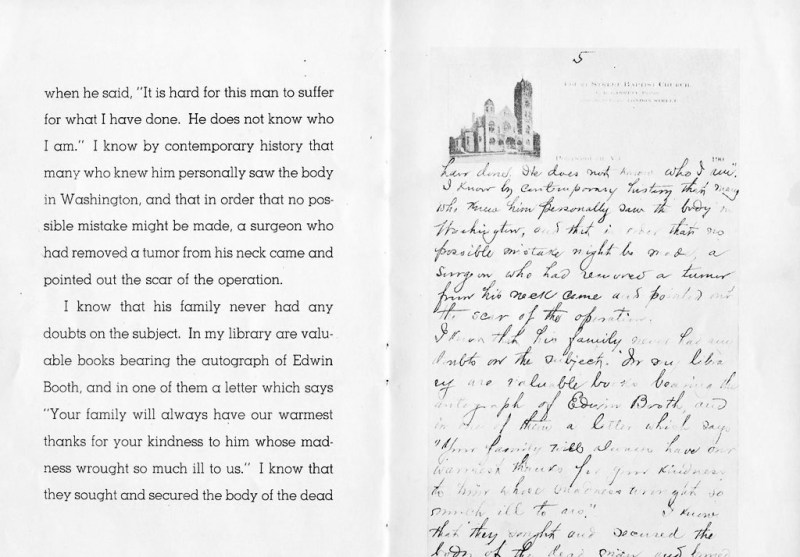 when he said, "It is hard for this man to suffer
for what I have done. He does not know who
I am." I know by contemporary history that
many who knew him personally saw the body
in Washington, and that in order that no pos-
sible mistake might be made, a surgeon who
had removed a tumor from his neck came and
pointed out the scar of the operation.
I know that his family never had any
doubts on the subject. In my library are valu-
able books bearing the autograph of Edwin
Booth, and in one of them a letter which says
"Your family will always have our warmest
thanks for your kindness to him whose mad-
ness wrought so much ill to us." I know that
they sought and secured the body of the dead
5
Street Baptist Church
190
have done. He does not know who I am".
I know by contemporary history that many
who knew him personally saw the body in
Washington, and that in order than no
possible mistake might be made, a
surgeon who had removed a tumor
from his neck came and pointed out
the scar of the operation.
I know that his family never had any
doubts on the subject. In my libra
ry are valuable books bearing the
autograph of Edwin Booth, and
in one of them a letter which says
"Your family will always have our
warmest thanks for your kindness
to him whose madness wrought so
much ill to us." I know
that they sought and secured the
body of the dead man and